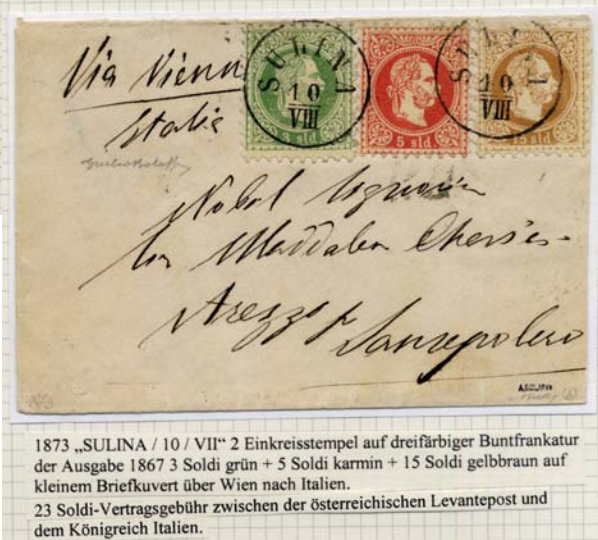 Via Vienna
Italia
SULINA
10
VIII
SULINA
10
VIII
3 sld
5 sld
15 sld
Nobil Signora
Maddalen
Arezzo p. Sansepolcro
1873 „SULINA / 10 / VII“ 2 Einkreisstempel auf dreifärbiger Buntfrankatur
der Ausgabe 1867 3 Soldi grün + 5 Soldi karmin + 15 Soldi gelbbraun auf
kleinem Briefkuvert über Wien nach Italien.
23 Soldi-Vertragsgebühr zwischen der österreichischen Levantepost und
dem Königreich Italien.